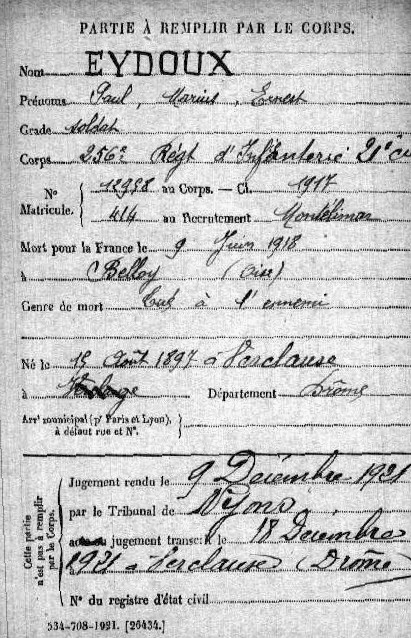 PARTIE À REMPLIR PAR LE CORPS.
Nom EYDOUX
Prénoms Paul, Marius, Ernest
Grade soldat
Corps 256e Régt d'Infanterie 21e Cie
No Matricule. 12938 au Corps. — Cl. 1917
414 au Recrutement Montélimar
Mort pour la France le 9 Juin 1918
à Belloy (Oise)
Genre de mort Tué à l'ennemi
Né le 15 Août 1897 à Verclause
à Département Drôme
Arrt municipal (pr Paris et Lyon),
à défaut rue et No.
Cette partie n'est pas à remplir par le Corps.
Jugement rendu le 9 Décembre 1921
par le Tribunal de Nyons
acte ou jugement transcrit le 18 Décembre
1921 à Verclause (Drôme)
No du registre d'état civil
534-708-1921. [26434.]